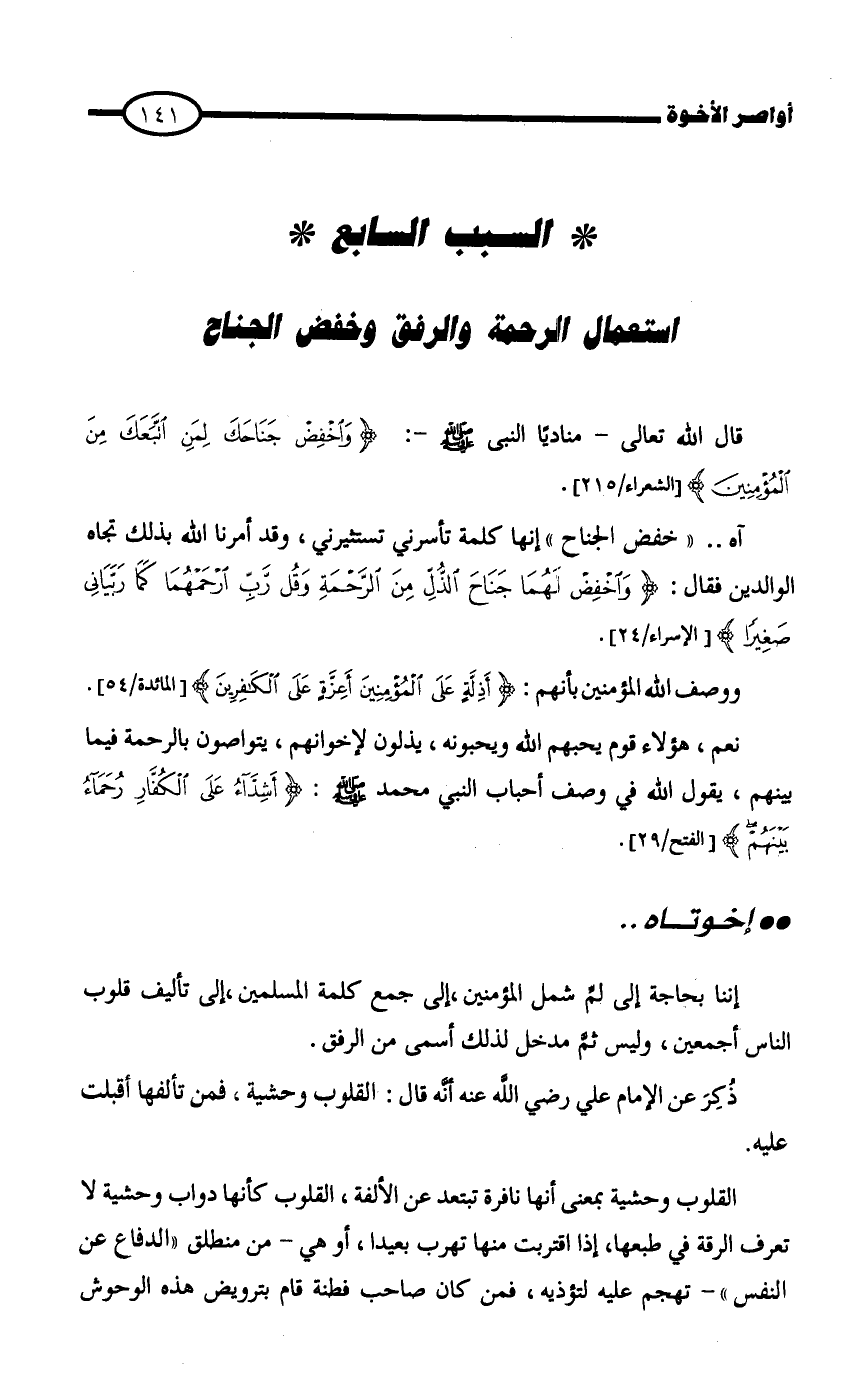 أواصر الأخوة ١٤١
* السبب السابع *
استعمال الرحمة والرفق وخفض الجناح
قال الله تعالى - مناديًا النبى ﷺ -: ﴿ وَٱخْفِضْ جَنَاحَكَ لِمَنِ ٱتَّبَعَكَ مِنَ
ٱلْمُؤْمِنِينَ ﴾ [الشعراء/٢١٥] .
آه .. « خفض الجناح » إنها كلمة تأسرني تستثيرني ، وقد أمرنا الله بذلك تجاه
الوالدين فقال : ﴿ وَٱخْفِضْ لَهُمَا جَنَاحَ ٱلذُّلِّ مِنَ ٱلرَّحْمَةِ وَقُل رَّبِّ ٱرْحَمْهُمَا كَمَا رَبَّيَانِى
صَغِيرًا ﴾ [ الإسراء/٢٤] .
ووصف الله المؤمنين بأنهم : ﴿ أَذِلَّةٍ عَلَى ٱلْمُؤْمِنِينَ أَعِزَّةٍ عَلَى ٱلْكَٰفِرِينَ ﴾ [ المائدة/٥٤] .
نعم ، هؤلاء قوم يحبهم الله ويحبونه ، يذلون لإخوانهم ، يتواصون بالرحمة فيما
بينهم ، يقول الله في وصف أحباب النبي محمد ﷺ : ﴿ أَشِدَّآءُ عَلَى ٱلْكُفَّارِ رُحَمَآءُ
بَيْنَهُمْ ۖ ﴾ [ الفتح/٢٩] .
●● إخوتـاه ..
إننا بحاجة إلى لمِّ شمل المؤمنين ،إلى جمع كلمة المسلمين ،إلى تأليف قلوب
الناس أجمعين ، وليس ثمَّ مدخل لذلك أسمى من الرفق .
ذُكِرَ عن الإمام علي رضي اللَّه عنه أنَّه قال : القلوب وحشية ، فمن تألفها أقبلت
عليه.
القلوب وحشية بمعنى أنها نافرة تبتعد عن الألفة ، القلوب كأنها دواب وحشية لا
تعرف الرقة في طبعها، إذا اقتربت منها تهرب بعيدا ، أو هي - من منطلق «الدفاع عن
النفس »- تهجم عليه لتؤذيه ، فمن كان صاحب فطنة قام بترويض هذه الوحوش